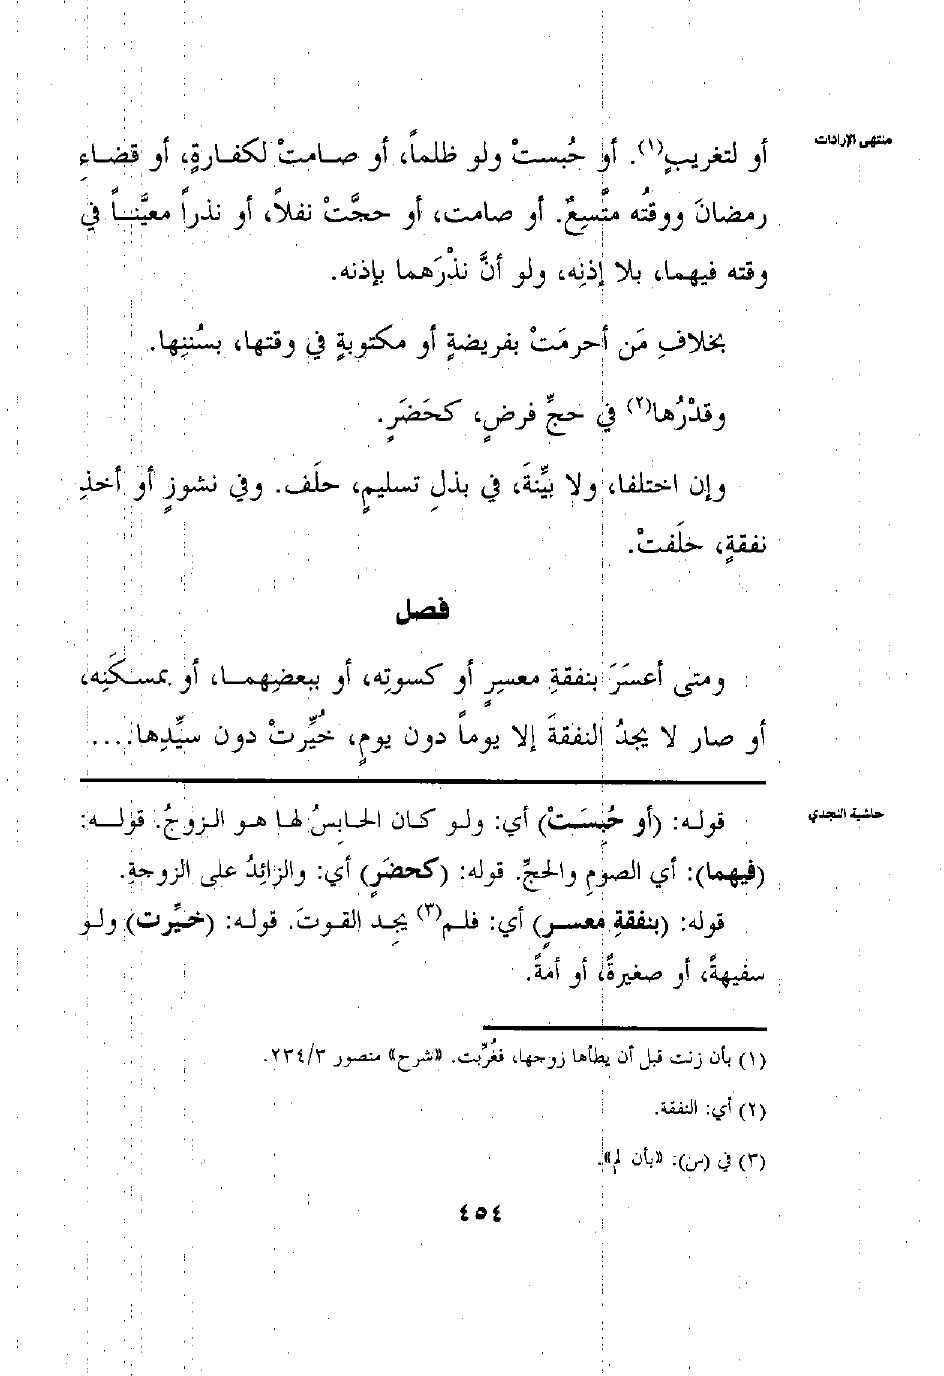 منتهى الإرادات
أو لتغريبٍ(١). أو حُبستْ ولو ظلماً، أو صامتْ لكفارةٍ، أو قضاءِ
رمضانَ ووقتُه متَّسِعٌ. أو صامت، أو حجَّتْ نفلاً، أو نذراً معيَّناً في
وقته فيهما، بلا إذنِه، ولو أنَّ نذْرَهما بإذنه.
بخلافِ مَن أحرمَتْ بفريضةٍ أو مكتوبةٍ في وقتها، بسُننِها.
وقدْرُها(٢) في حجِّ فرضٍ، كحَضَرٍ.
وإن اختلفا، ولا بيِّنةَ، في بذلِ تسليمٍ، حلَف. وفي نشوزٍ أو أخذِ
نفقةٍ، حلَفتْ.
فصل
ومتى أعسَرَ بنفقةِ معسرٍ أو كسوتِه، أو ببعضِهما، أو بمسكَنِه،
أو صار لا يجدُ النفقةَ إلا يوماً دون يومٍ، خُيِّرتْ دون سيِّدِها....
حاشية النجدي
قوله: (أو حُبِسَتْ) أي: ولو كان الحابِسُ لها هو الزوجُ. قوله:
(فيهما): أي الصومِ والحجِّ. قوله: (كحضَرٍ) أي: والزائِدُ على الزوجةِ.
قوله: (بنفقةِ معسرٍ) أي: فلم(٣) يجِد القوتَ. قوله: (خيِّرت) ولو
سفيهةً، أو صغيرةً، أو أمَةً.
(١) بأن زنت قبل أن يطأها زوجها، فغُرِّبت. «شرح» منصور ٢٣٤/٣.
(٢) أي: النفقة.
(٣) في (س): «بأن لم».
٤٥٤